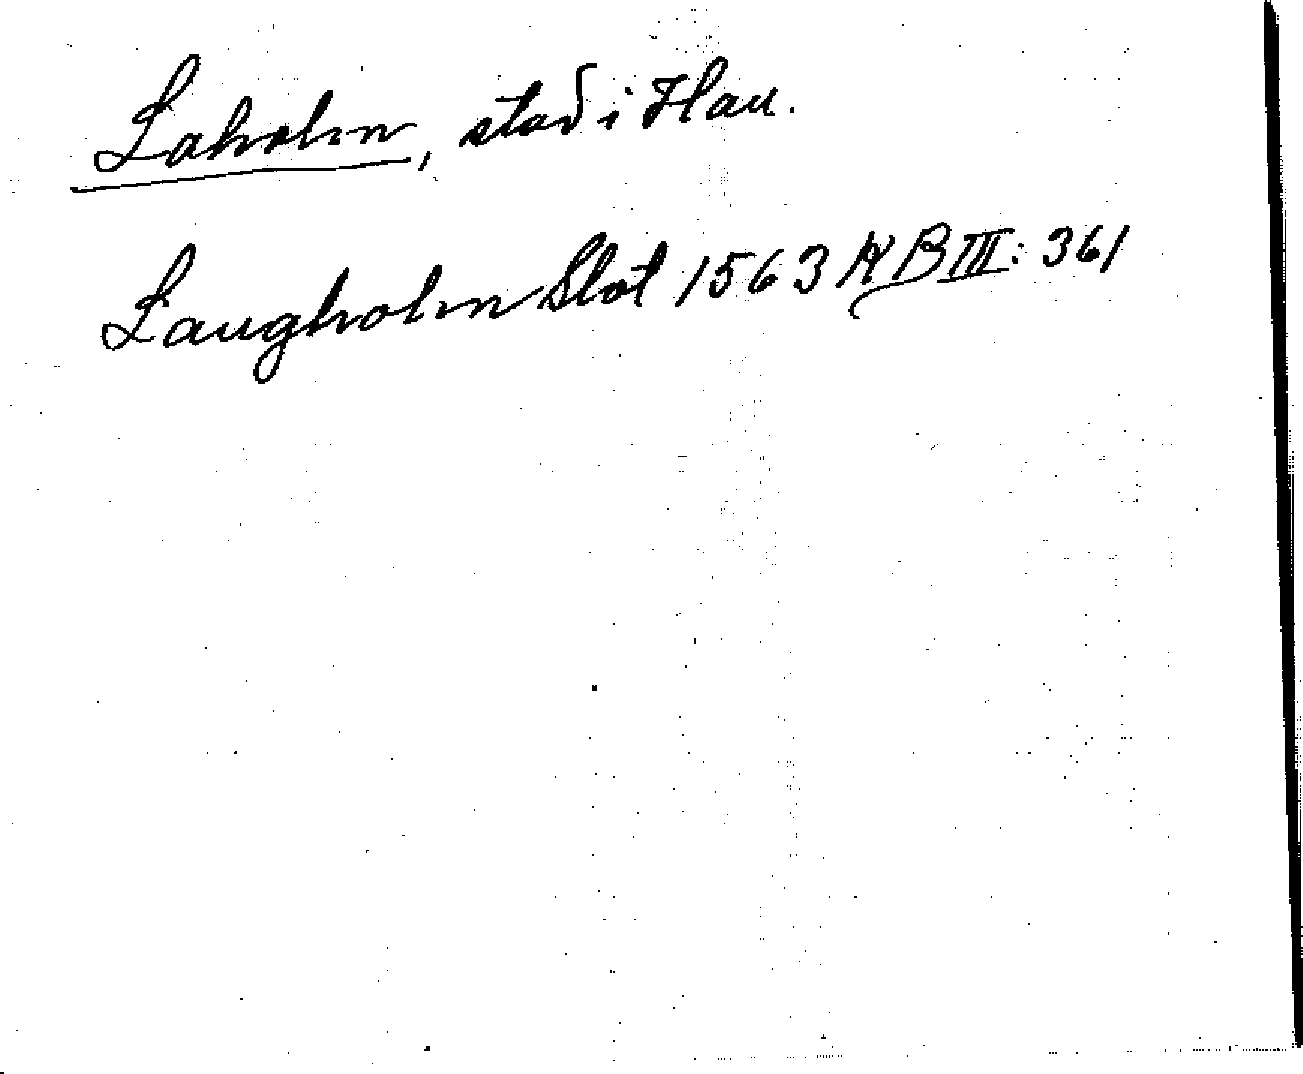 Laholm, stad i Hall.
Laugholm Slot 1563 KB III: 361